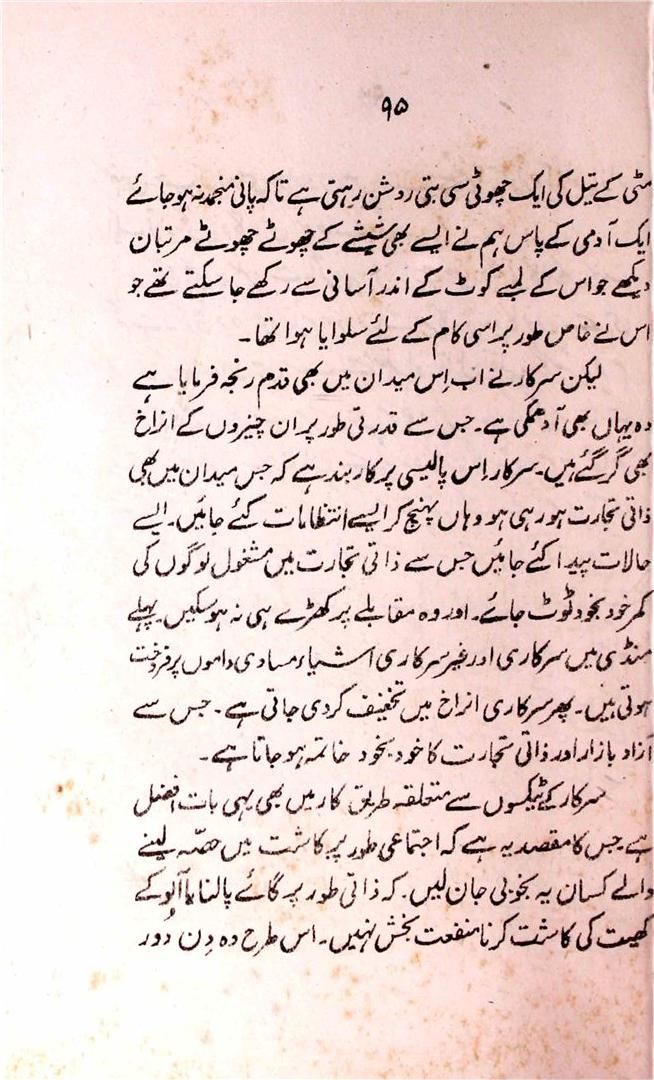 ۹۵
مٹی کے تیل کی ایک چھوٹی سی بتی روشن رہتی ہے تاکہ پانی منجمد نہ ہو جائے
ایک آدمی کے پاس ہم نے ایسے بھی شیشے کے چھوٹے چھوٹے مرتبان
دیکھے جو اس کے لمبے کوٹ کے اندر آسانی سے رکھے جا سکتے تھے جو
اس نے خاص طور پر اسی کام کے لئے سلوایا ہوا تھا۔
لیکن سرکار نے اب اِس میدان میں بھی قدم رنجہ فرمایا ہے
وہ یہاں بھی آدھمکی ہے۔ جس سے قدرتی طور پر ان چیزوں کے انراخ
بھی گر گئے ہیں۔ سرکار اِس پالیسی پر کاربند ہے کہ جس میدان میں بھی
ذاتی تجارت ہو رہی ہو وہاں پہنچ کر ایسے انتظامات کئے جائیں۔ ایسے
حالات پیدا کئے جائیں جس سے ذاتی تجارت میں مشغول لوگوں کی
کمر خود بخود ٹوٹ جائے۔ اور وہ مقابلے پر کھڑے ہی نہ ہو سکیں۔ پہلے
منڈی میں سرکاری اور غیر سرکاری اشیاء مساوی داموں پر فروخت
ہوتی ہیں۔ پھر سرکاری انراخ میں تخفیف کر دی جاتی ہے۔ جس سے
آزاد بازار اور ذاتی تجارت کا خود بخود خاتمہ ہو جاتا ہے۔
سرکار کے ٹیکسوں سے متعلقہ طریق کار میں بھی یہی بات افضل
ہے جس کا مقصد یہ ہے کہ اجتماعی طور پر کاشت میں حصّہ لینے
والے کسان یہ بخوبی جان لیں۔ کہ ذاتی طور پر گائے پالنا یا آلو کے
کھیت کی کاشت کرنا منفعت بخش نہیں۔ اس طرح وہ دِن دُور